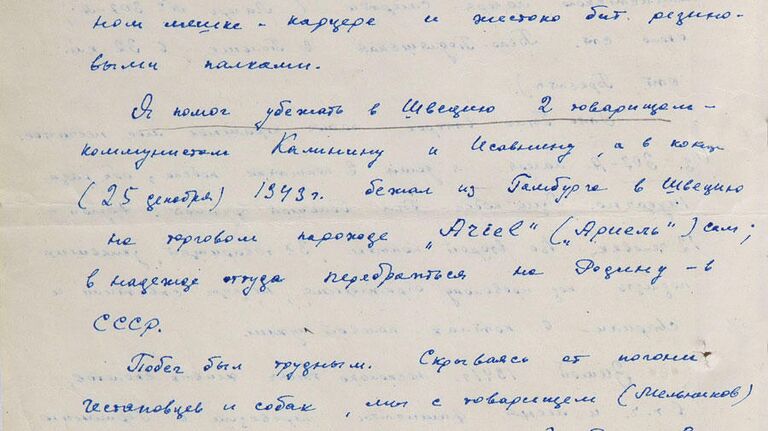 ном мешке - карцере и жестоко бит резино-
выми палками.
Я помог убежать в Швецию 2 товарищам -
коммунистам Калинину и Исавнину, а в конце
(25 декабря) 1943 г. бежал из Гамбурга в Швецию
на торговом пароходе „Ariel“ („Ариель“) сам;
в надежде оттуда перебраться на Родину - в
СССР.
Побег был трудным. Скрываясь от погони
гестаповцев и собак, мы с товарищем (Мельников)